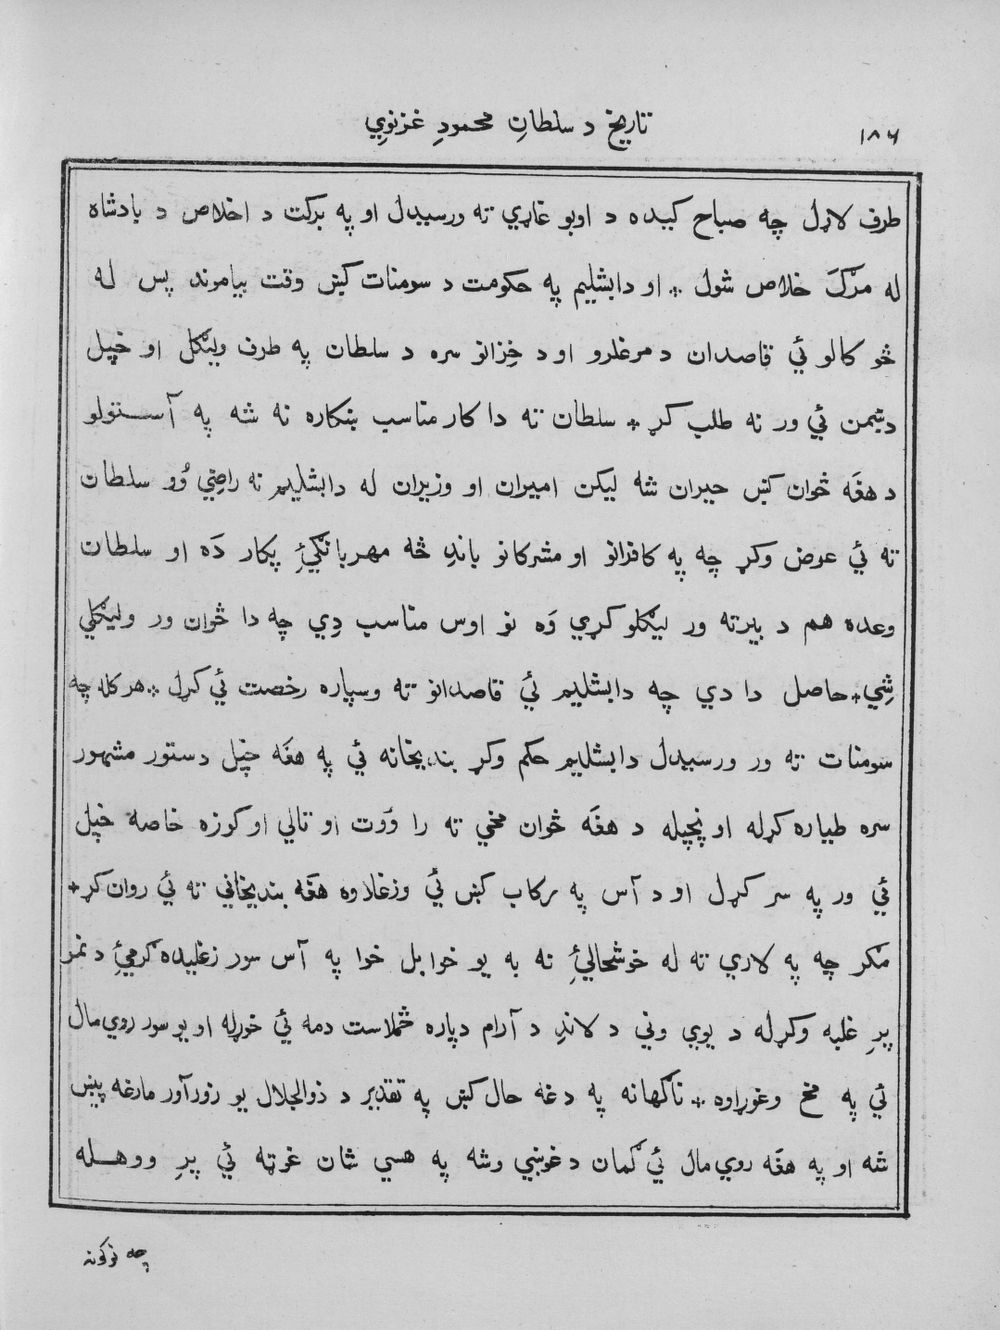 ۱۸۶
تاریخ د سلطانِ محمودِ غزنوِي
طرف لاړل چه صباح کېده د اوبو غاړي ته ورسیدل او په برکت د اخلاص د بادشاه
له مرګَ خلاص شول ٭ او دابشلیم په حکومت د سومنات کښ وقت بیاموند پس له
څو کالو ئي قاصدان د مرغلرو او د خِزانو سره د سلطان په طرف ولیګل او خپل
دښمن ئي ور نه طلب کړ ٭ سلطان ته دا کار مناسب ښکاره نه شه په آستولو
د هغَه ځوان کښ حیران شه لیکن امیران او وزیران له دابشلیم نه راضِي وُو سلطان
ته ئي عوض وکړ چه په کافرانو او مشرکانو باندِ څه مهربانګئِ پکار دَه او سلطان
وعده هم د بیرته ور لیګلو کړي وَه نو اوس مناسب دِي چه دا ځوان ور ولیګلي
شِي ٭ حاصل دا دي چه دابشلیم ئي قاصدانو ته وسپاره رخصت ئي کړل ٭ هرکله چه
سومنات ته ور ورسیدل دابشلیم حکم وکړ بندیخانه ئي په هغَه خپل دستور مشهور
سره طیاره کړله او پخپله د هغَه ځوان مخي ته را ووت او تالي او کوزه خاصه خپل
ئي ور په سر کړل او د آس په رکاب کښ ئي وزغلاوه هغَه بندیخاني ته ئي روان کړ ٭
مګر چه په لاري ته له خوشحالئِ نه به یو خوا بل خوا په آس سور زغلیده ګرمئِ د نمر
پرِ غلبه وکړله د یوې وني د لاندِ د آرام دپاره څملاست دمه ئي خوړله او یو سور روي‌مال
ئي په مخ وغوړاوه ٭ ناګهانه په دغه حال کښ په تقدیر د ذوالجلال یو زورآور مارغه پیښ
شه او په هغَه روي‌مال ئي ګمان د غوښي وشه په هسي شان غوټه ئي پرِ ووهله
چه نوکونه